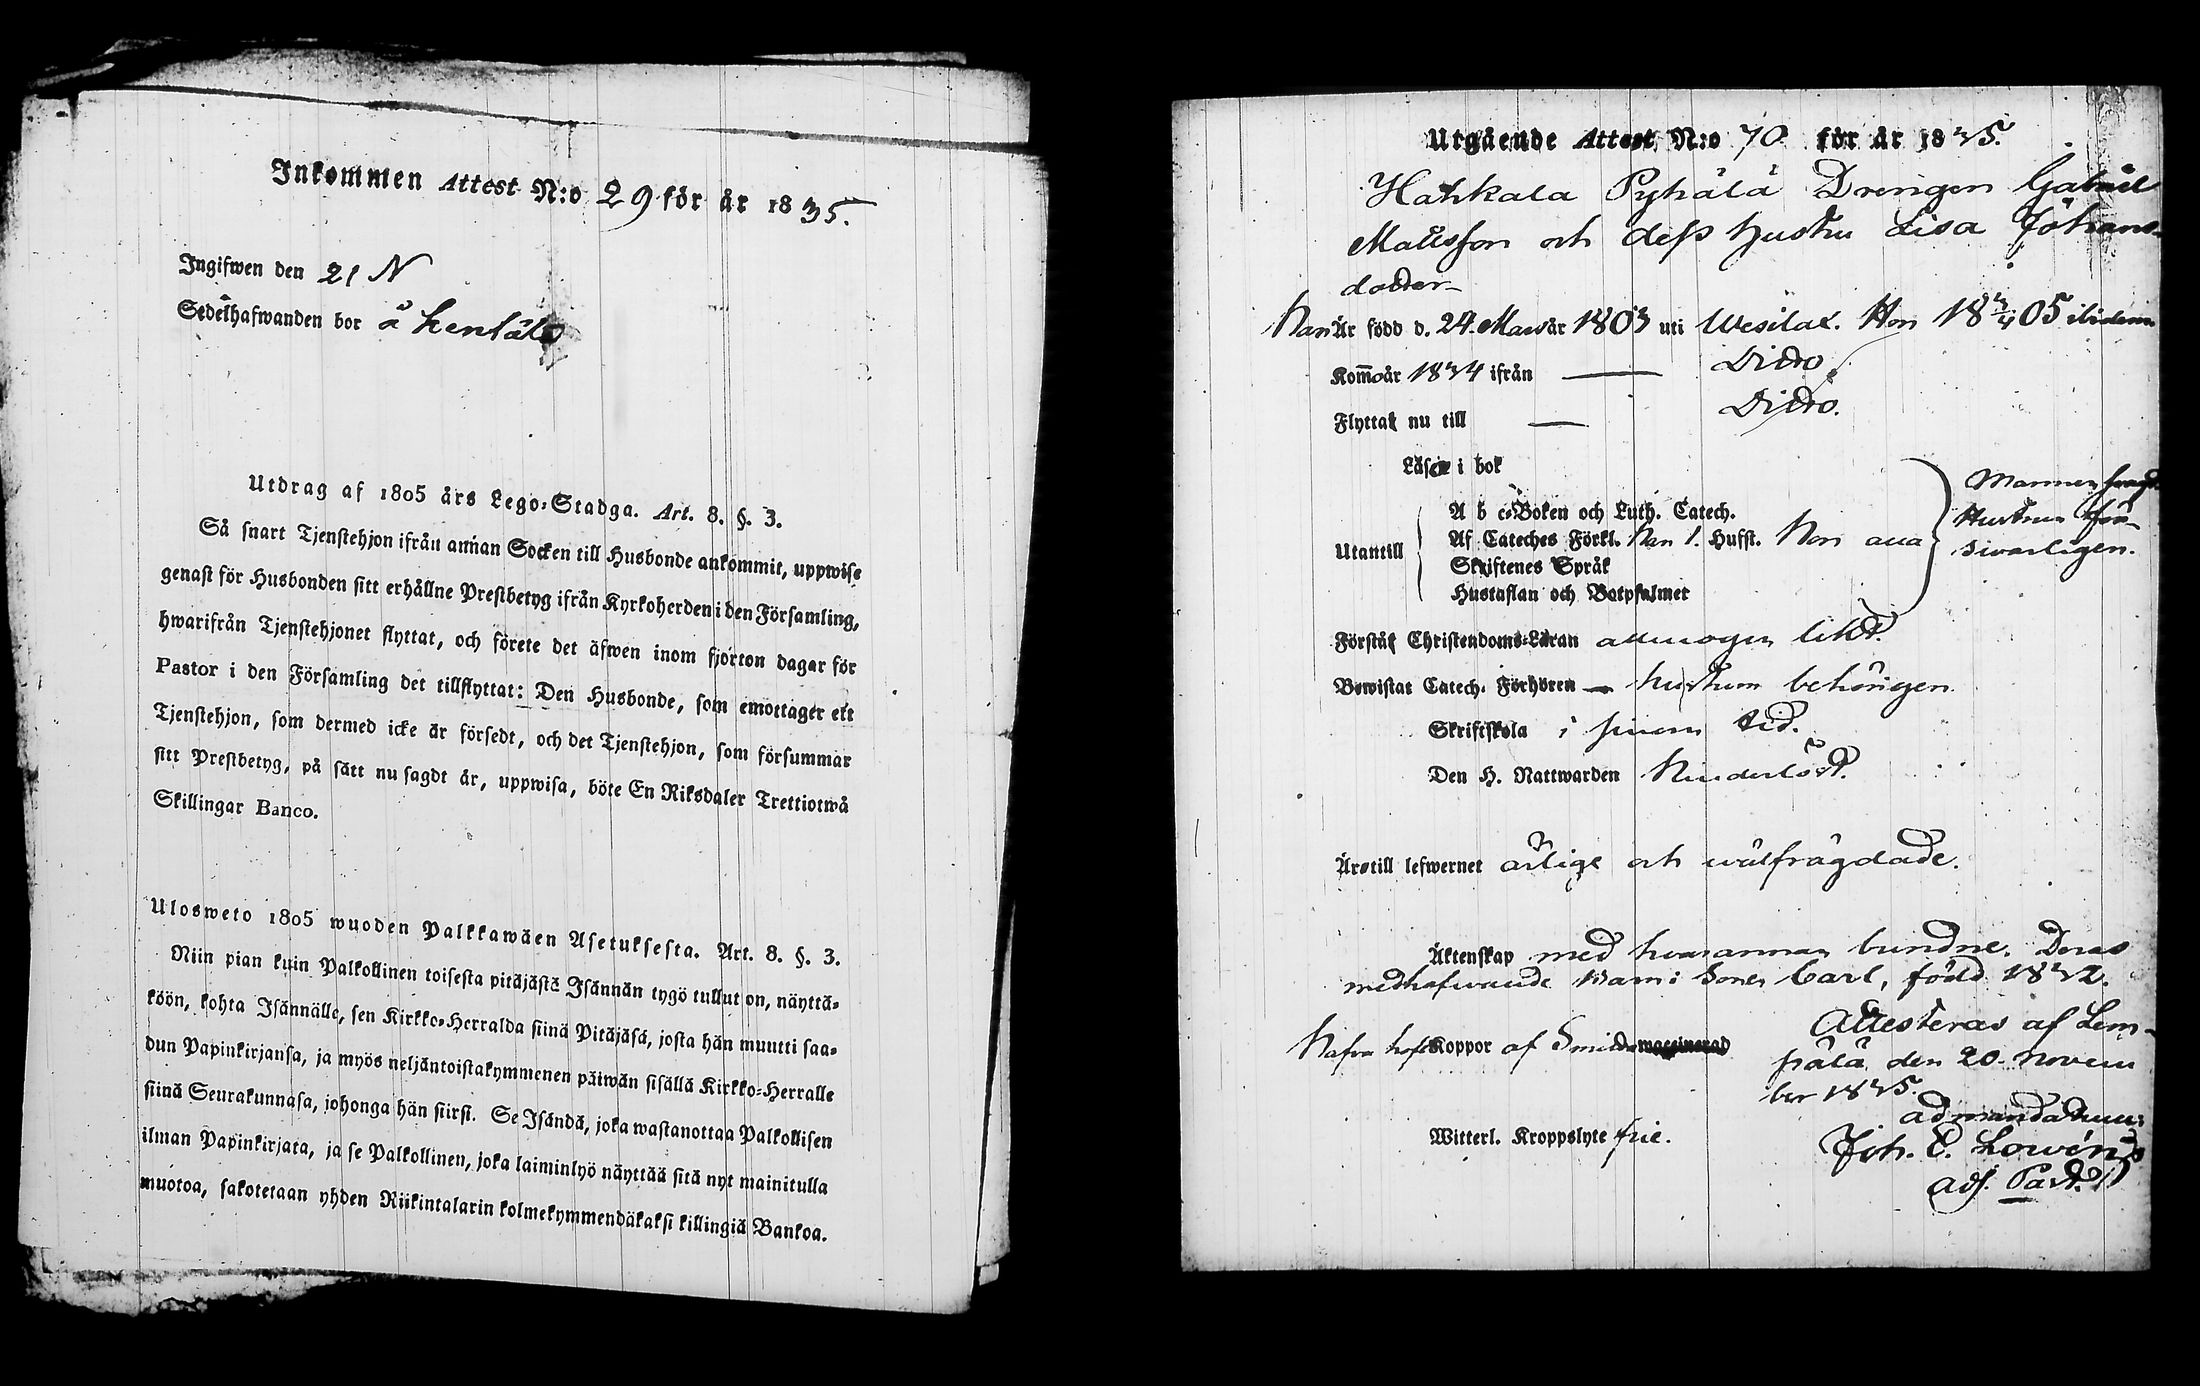 Inkommen Attest N:o 29 för år 1835.
Ingifwen den 21 N
Sedelhafwanden bor å
Utdrag af 1805 års Lego-Stadga. Art. 8. §. 3.
Så snart Tjenstehjon ifrån annan Socken till Husbonde ankommit, uppwise
genast för Husbonden sitt erhållne Prestbetyg ifrån Kyrkoherden i den Församling,
hwarifrån Tjenstehjonet flyttat, och förete det äfwen inom fjorton dagar för
Pastor i den Församling det tillflyttat: Den Husbonde, som emottager ett
Tjenstehjon, som dermed icke är försedt, och det Tjenstehjon, som försummar
sitt Prestbetyg, på sätt nu sagdt är, uppwisa, böte En Riksdaler Trettiotwå
Skillingar Banco.
Ulosweto 1805 wuoden Palkkawäen Asetuksesta. Art. 8. §. 3.
Niin pian kuin Palkollinen toisesta pitäjästä Isännän tygö tullut on, näyttä-
köön, kohta Isännälle, sen Kirkko-Herralda siinä Pitäjäsä, josta hän muutti saa-
dun Papinkirjansa, ja myös neljäntoistakymmenen päiwän sisällä Kirkko-Herralle
siinä Seurakunnasa, johonga hän siirsi. Se Isändä, joka wastanottaa Palkollisen
ilman Papinkirjata, ja se Palkollinen, joka laiminlyö näyttää sitä nyt mainitulla
muotoa, sakotetaan yhden Riikintalarin kolmekymmendäkaksi killingiä Bankoa.
Utgående Attest N:o 70 för år 1835.
Hahkala Pyhälä Drengen Gabriel
Mattsson och dess hustru Lisa Johans-
dotter
Han Är född d. 24 Mars år 1803 uti Wesilax. Hon 18 3/4 05 ibidem
Kom̄o år 1834 ifrån — Ditto
Flyttat nu till — Ditto.
Läser i bok
A b c-Boken och Luth. Catech.
Utantill Af Cateches Förkl. Han 1. Hufst. Hon alla
Skriftenes Språk
Hustaflan och Botpsalmer
Mannen swagt
Hustrun för-
swarligen.
Förstår Christendoms-Läran allmogen likt.
Bewistat Catech. Förhören — hustrun behörigen
Skriftskola i sinom tid.
Den H. Nattwarden Hinderlöst.
Äro till lefwernet ärlige och wälfrägdade.
Äktenskap med hwarannan bundne. Deras
medhafwande Barn: Sonen Carl, född 1832.
Hafwa haft Koppor af Smitta
Witterl. Kroppslyte frie.
Attesteras af Lem-
pälä den 20 Novem
ber 1835.
ad mandatum
Joh. E.
adj. Past.